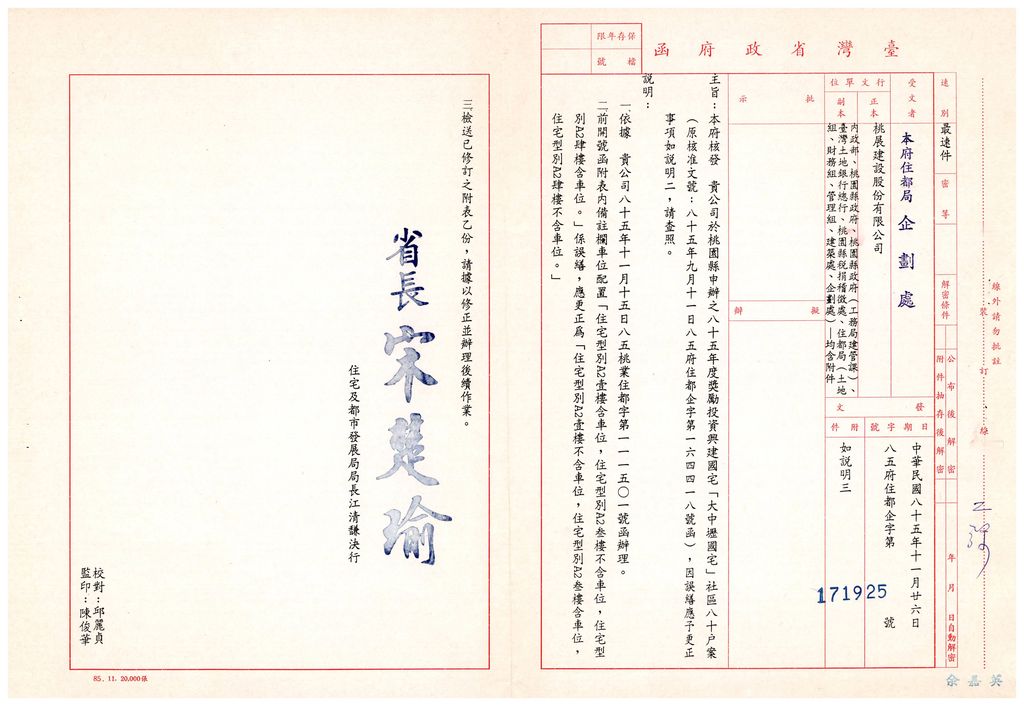 臺灣省政府函
保存年限
檔號
速別
最速件
密等
解密條件
公布後解密
附件抽存後解密
年 月 日自動解密
受文者
本府住都局企劃處
行文單位
正本
桃展建設股份有限公司
副本
內政部、桃園縣政府、桃園縣政府(工務局建管課)、
臺灣土地銀行總行、桃園縣稅捐稽徵處、住都局(土地
組、財務組、管理組、建築處、企劃處)—均含附件
發文
日期
中華民國八十五年十一月廿六日
字號
八五府住都企字第
171925
號
附件
如說明三
批示
擬辦
主旨:本府核發 貴公司於桃園縣申辦之八十五年度獎勵投資興建國宅「大中壢國宅」社區八十戶案
(原核准文號:八十五年九月十一日八五府住都企字第一六四四一八號函),因誤繕應予更正
事項如說明二,請查照。
說明:
一、依據 貴公司八十五年十一月十五日八五桃業住都字第一一一五〇一號函辦理。
二、前開號函附表內備註欄車位配置「住宅型別A2壹樓含車位,住宅型別A2叁樓不含車位,住宅型
別A2肆樓含車位。」係誤繕,應更正為「住宅型別A2壹樓不含車位,住宅型別A2叁樓含車位,
住宅型別A2肆樓不含車位。」
三、檢送已修訂之附表乙份,請據以修正並辦理後續作業。
省長 宋楚瑜
住宅及都市發展局局長江清馦決行
校對:邱麗貞
監印:陳俊華
85.11.20,000張
裝訂線
線外請勿批註
余嘉英